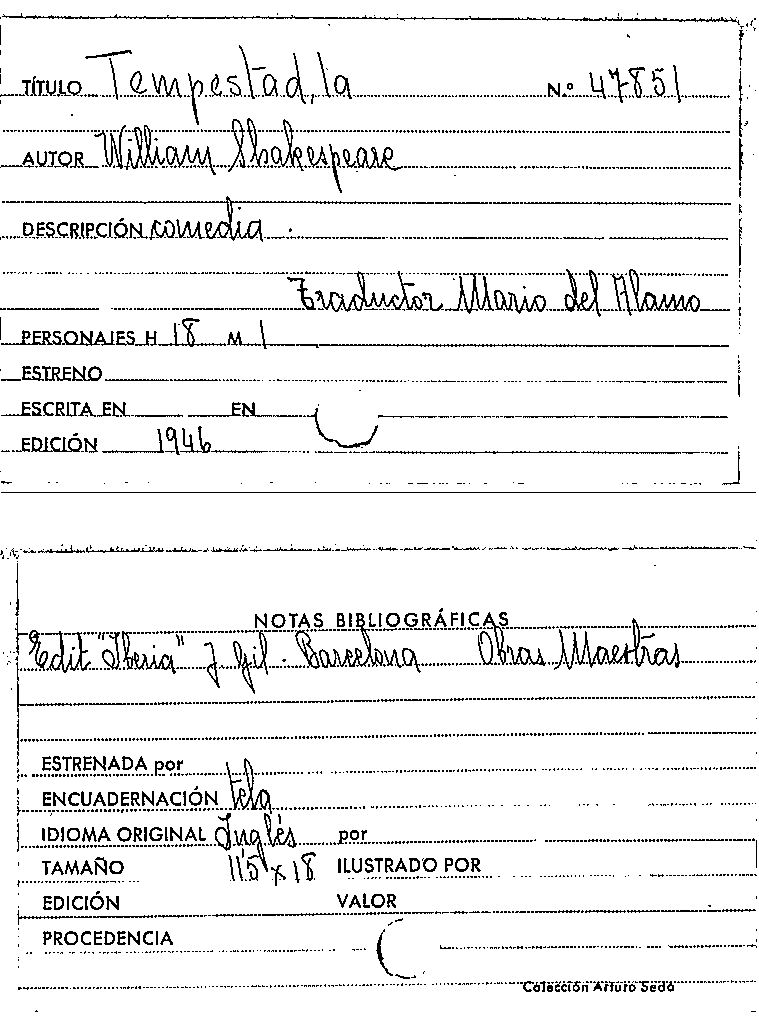 TÍTULO Tempestad, la N.º 47851
AUTOR William Shakespeare
DESCRIPCIÓN comedia.
Traductor Mario del Alamo
PERSONAJES H 18 M 1
ESTRENO
ESCRITA EN EN
EDICIÓN 1946
NOTAS BIBLIOGRÁFICAS
Edit "Iberia" J. Gil. Barcelona Obras Maestras
ESTRENADA por
ENCUADERNACIÓN tela
IDIOMA ORIGINAL Inglés por
TAMAÑO 11'5 x 18 ILUSTRADO POR
EDICIÓN VALOR
PROCEDENCIA
Colección Arturo Sedó